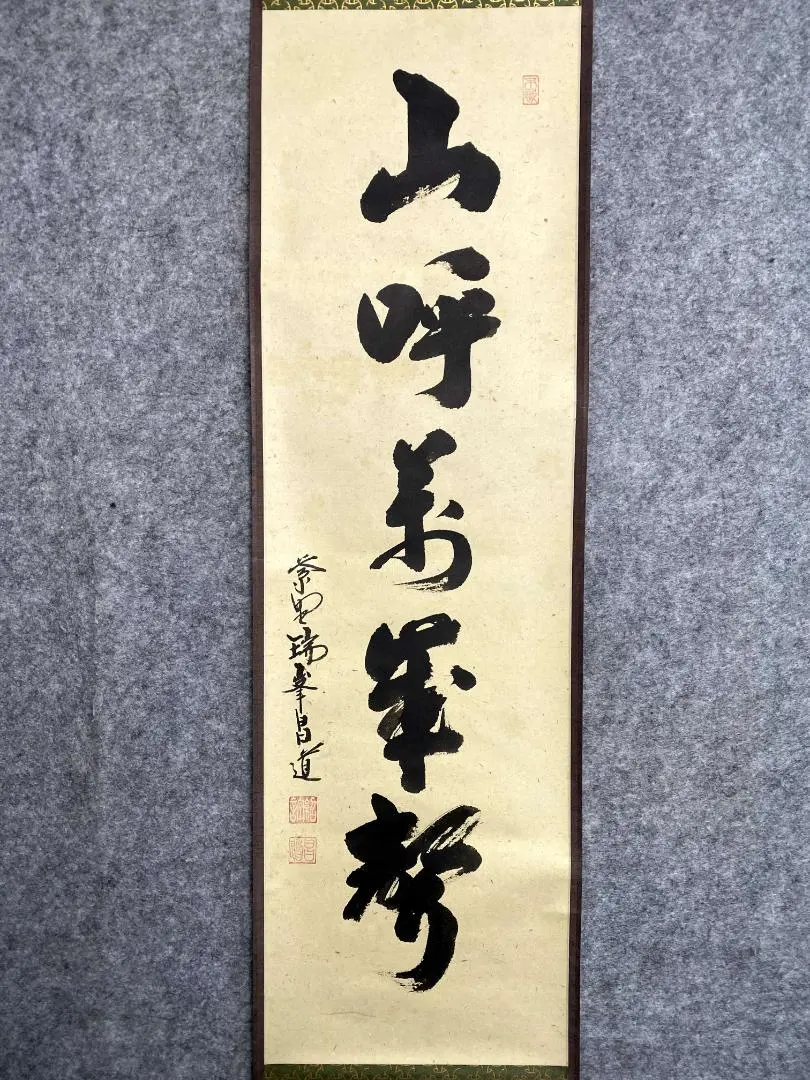 山呼萬歳聲
紫野瑞峯昌道